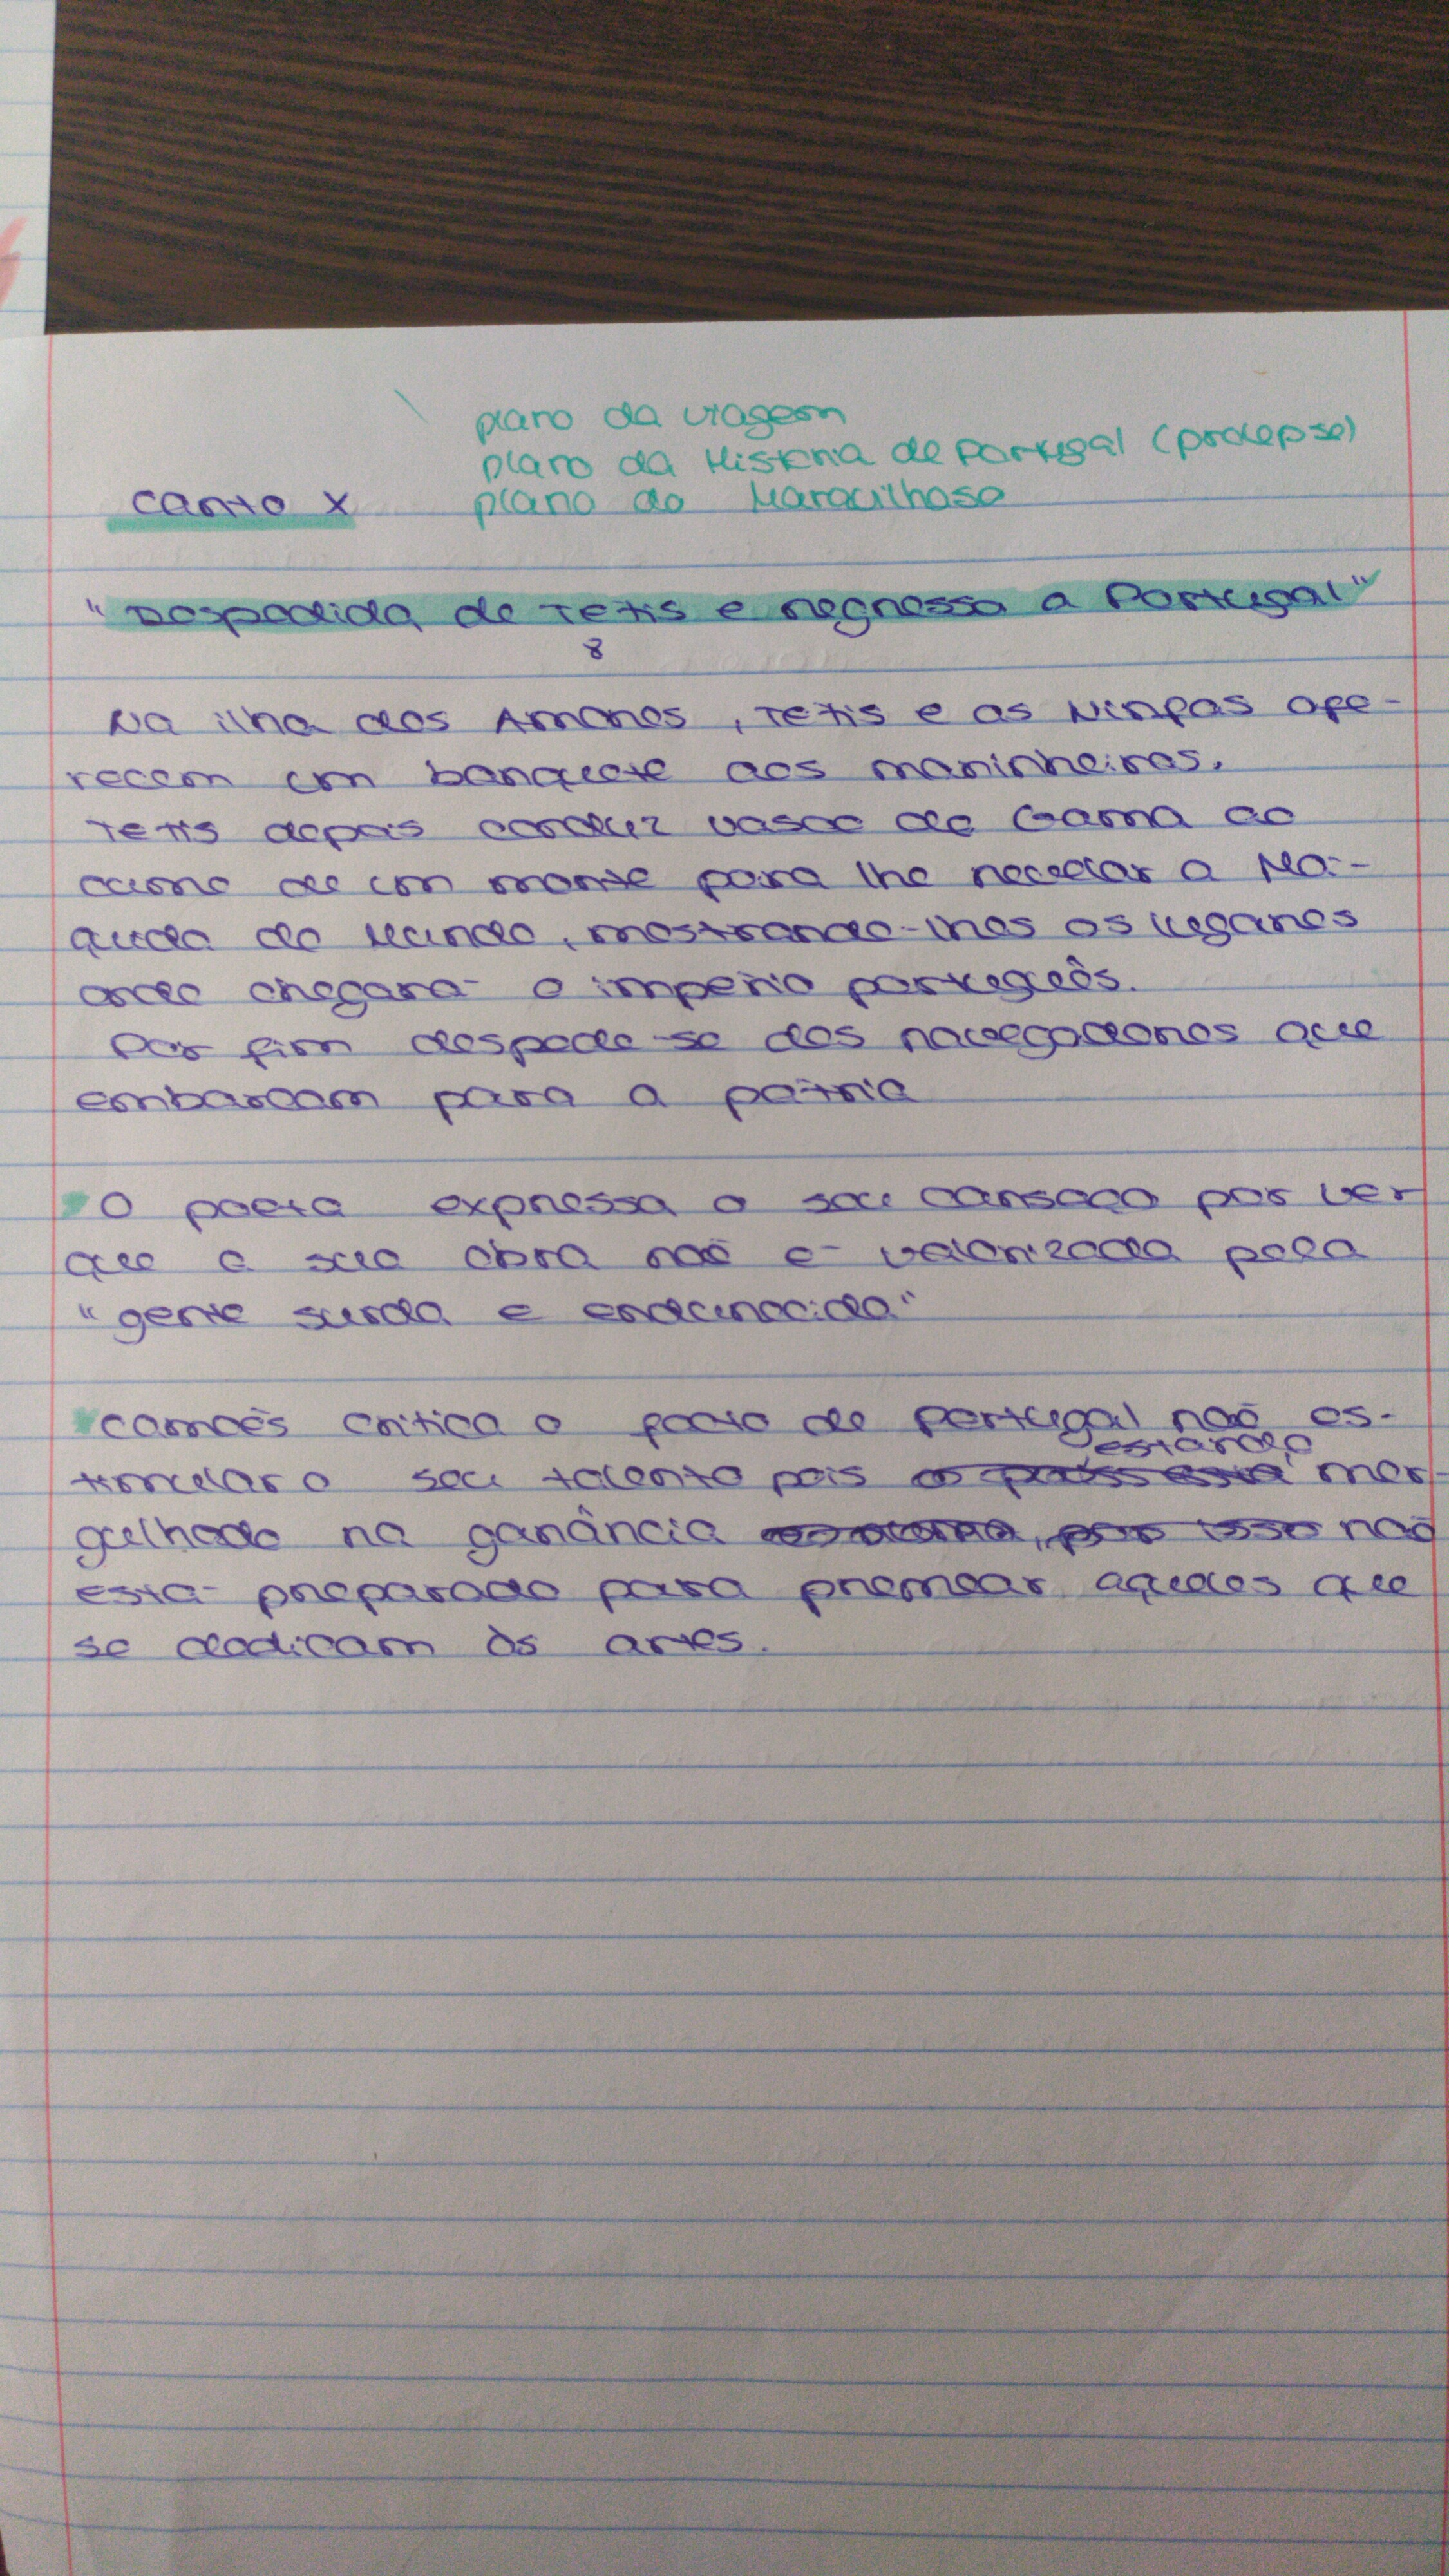 plano da viagem
plano da História de Portugal (prolepse)
Canto X plano do Maravilhoso
"Despedida de Tétis e regresso a Portugal"
8
Na ilha dos Amores, Tétis e as Ninfas ofe-
recem um banquete aos marinheiros.
Tétis depois conduz Vasco da Gama ao
cume de um monte para lhe revelar a Má-
quida do Mundo, mostrando-lhes os lugares
onde chegará o império português.
Por fim despede-se dos navegadores que
embarcam para a pátria
O poeta expressa o seu cansaço por ver
que a sua obra não é valorizada pela
"gente surda e endurecida"
Camões critica o facto de Portugal não es-
estando
timular o seu talento pois o país está mer-
gulhado na ganância por isso não
está preparado para premear aqueles que
se dedicam às artes.